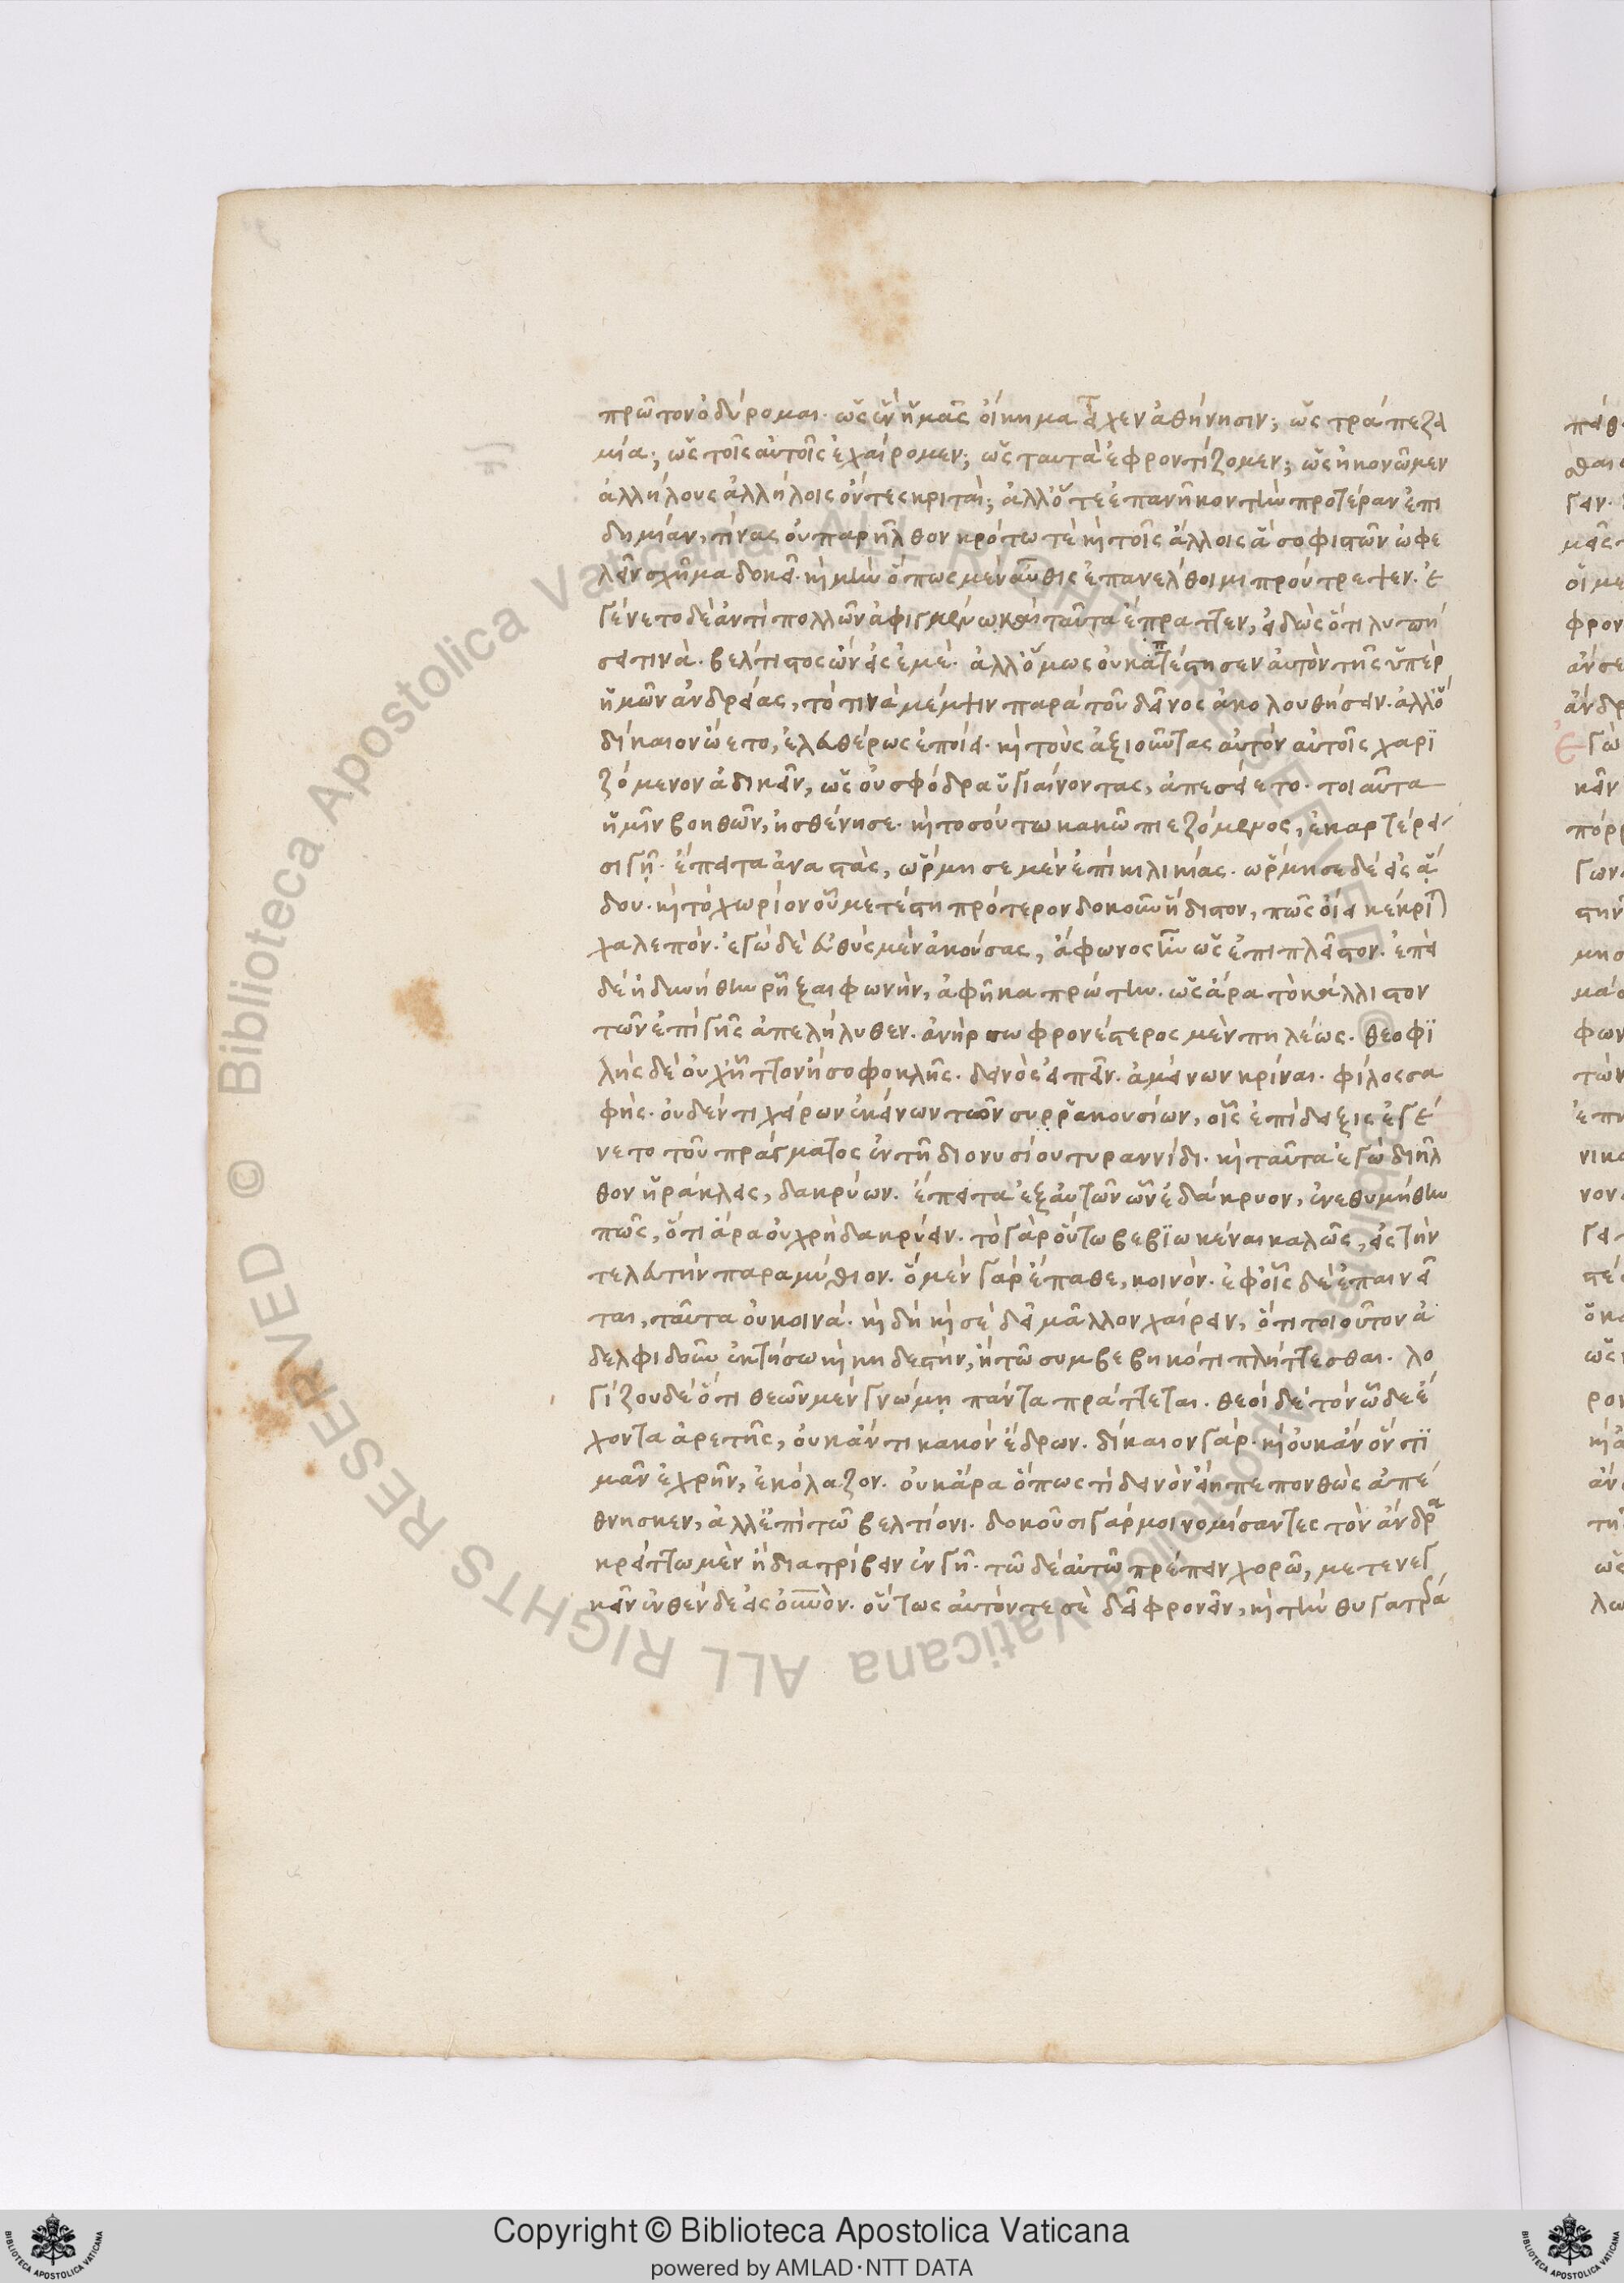 πρῶτον ὀδύρομαι. ὡς ἓν ἡμᾶς οἴκημα εἶχεν ἀθήνησιν; ὡς τράπεζα
μία; ὡς τοῖς αὐτοῖς ἐχαίρομεν; ὡς ταυτὰ ἐφροντίζομεν; ὡς ἠκονῶμεν
ἀλλήλους ἀλλήλοις ὄντες κριταί; ἀλλ' ὅτε ἐπανῆκον τὴν προτέραν ἐπι
δημίαν, τίνας οὐ παρῆλθον κρότω τὲ καὶ τοῖς ἄλλοις ἃ σοφιστῶν ὠφε
λεῖν σχῆμα δοκεῖ. καὶ μὴν ὅπως μὲν αὖθις ἐπανέλθοιμι προύτρεψεν. ἐ
γένετο δὲ ἀντὶ πολλῶν ἀφιγμένω καὶ ταῦτα ἔπραττεν, εἰδὼς ὅτι λυπή
σει τινὰ. βέλτιστος ὢν εἰς ἐμὲ. ἀλλ' ὅμως οὐκ ἀπέστησεν αὐτὸν τῆς ὑπὲρ
ἡμῶν ἀνδρείας, τό τινὰ μέμψιν παρὰ τοῦ δεῖνος ἀκολουθήσειν. ἀλλ' ὃ
δίκαιον ᾤετο, ἐλευθέρως ἐποίει. καὶ τοὺς ἀξιοῦντας αὐτὸν αὐτοῖς χαρι
ζόμενον ἀδικεῖν, ὡς οὐ σφόδρα ὑγιαίνοντας, ἀπεσείετο. τοιαῦτα
ἡμῖν βοηθῶν, ἠσθένησε. καὶ τοσούτω κακῶ πιεζόμενος, ἐκαρτέρει
σιγῇ. ἔπειτα ἀναστὰς, ὥρμησε μὲν ἐπὶ κιλικίας. ὥρμησε δὲ εἰς ᾅ
δου. καὶ τὸ χωρίον οὗ μετέστη πρότερον δοκοῦν ἥδιστον, πῶς οἴει κέκριται
χαλεπόν. ἐγὼ δὲ εὐθὺς μὲν ἀκούσας, ἄφωνος ἦν ὡς ἐπιπλεῖστον. ἐπεὶ
δὲ ἠδυνήθην ῥῆξαι φωνὴν, ἀφῆκα πρώτην. ὡς ἄρα τὸ κάλλιστον
τῶν ἐπὶ γῆς ἀπελήλυθεν. ἀνὴρ σωφρονέστερος μὲν πηλέως. θεοφι
λὴς δὲ οὐχ ἧττον ἢ σοφοκλῆς. δεινὸς εἰπεῖν. ἀμείνων κρίναι. φίλος σα
φής. οὐδέν τι χείρων ἐκείνων τῶν συρρακουσίων, οἷς ἐπίδειξις ἐγέ
νετο τοῦ πράγματος ἐν τῇ διονυσίου τυραννίδι. καὶ ταῦτα ἐγὼ διῆλ
θον ἡράκλεις, δακρύων. ἔπειτα ἐξ αὐτῶν ὧν ἐδάκρυον, ἐνεθυμήθην
πως, ὅτι ἄρα οὐ χρὴ δακρύειν. τὸ γὰρ οὕτω βεβιωκέναι καλῶς, εἰς τὴν
τελευτὴν παραμύθιον. ὃ μὲν γὰρ ἔπαθε, κοινὸν. ἐφ' οἷς δὲ ἐπαινεῖ
ται, ταῦτα οὐ κοινά. καὶ δὴ καὶ σὲ δεῖ μᾶλλον χαίρειν, ὅτι τοιοῦτον ἀ
δελφιδοῦν ἐκτήσω καὶ κηδεστὴν, ἢ τῶ συμβεβηκότι πλήττεσθαι. λο
γίζου δὲ ὅτι θεῶν μὲν γνώμῃ πάντα πράττεται. θεοὶ δὲ τὸν ὧδε ἔ
χοντα ἀρετῆς, οὐκ ἄν τι κακὸν ἔδρων. δίκαιον γάρ. καὶ οὐκ ἂν ὃν τι
μᾶν ἐχρῆν, ἐκόλαζον. οὐκ ἄρα ὅπως τι δεινὸν εἴη πεπονθὼς ἀπέ
θνησκεν, ἀλλ' ἐπὶ τῶ βελτίονι. δοκοῦσι γάρ μοι νομίσαντες τὸν ἄνδρα
κρείττω μὲν ἢ διατρίβειν ἐν γῇ. τῶ δὲ αὐτῶ πρέπειν χορῶ, μετενεγ
κεῖν ἐνθένδε εἰς οὐρανὸν. οὕτως αὐτόν τε σὲ δεῖ φρονεῖν, καὶ τὴν θυγατέρα
Copyright © Biblioteca Apostolica Vaticana
powered by AMLAD·NTT DATA
© Biblioteca Apostolica Vaticana ALL RIGHTS RESERVED